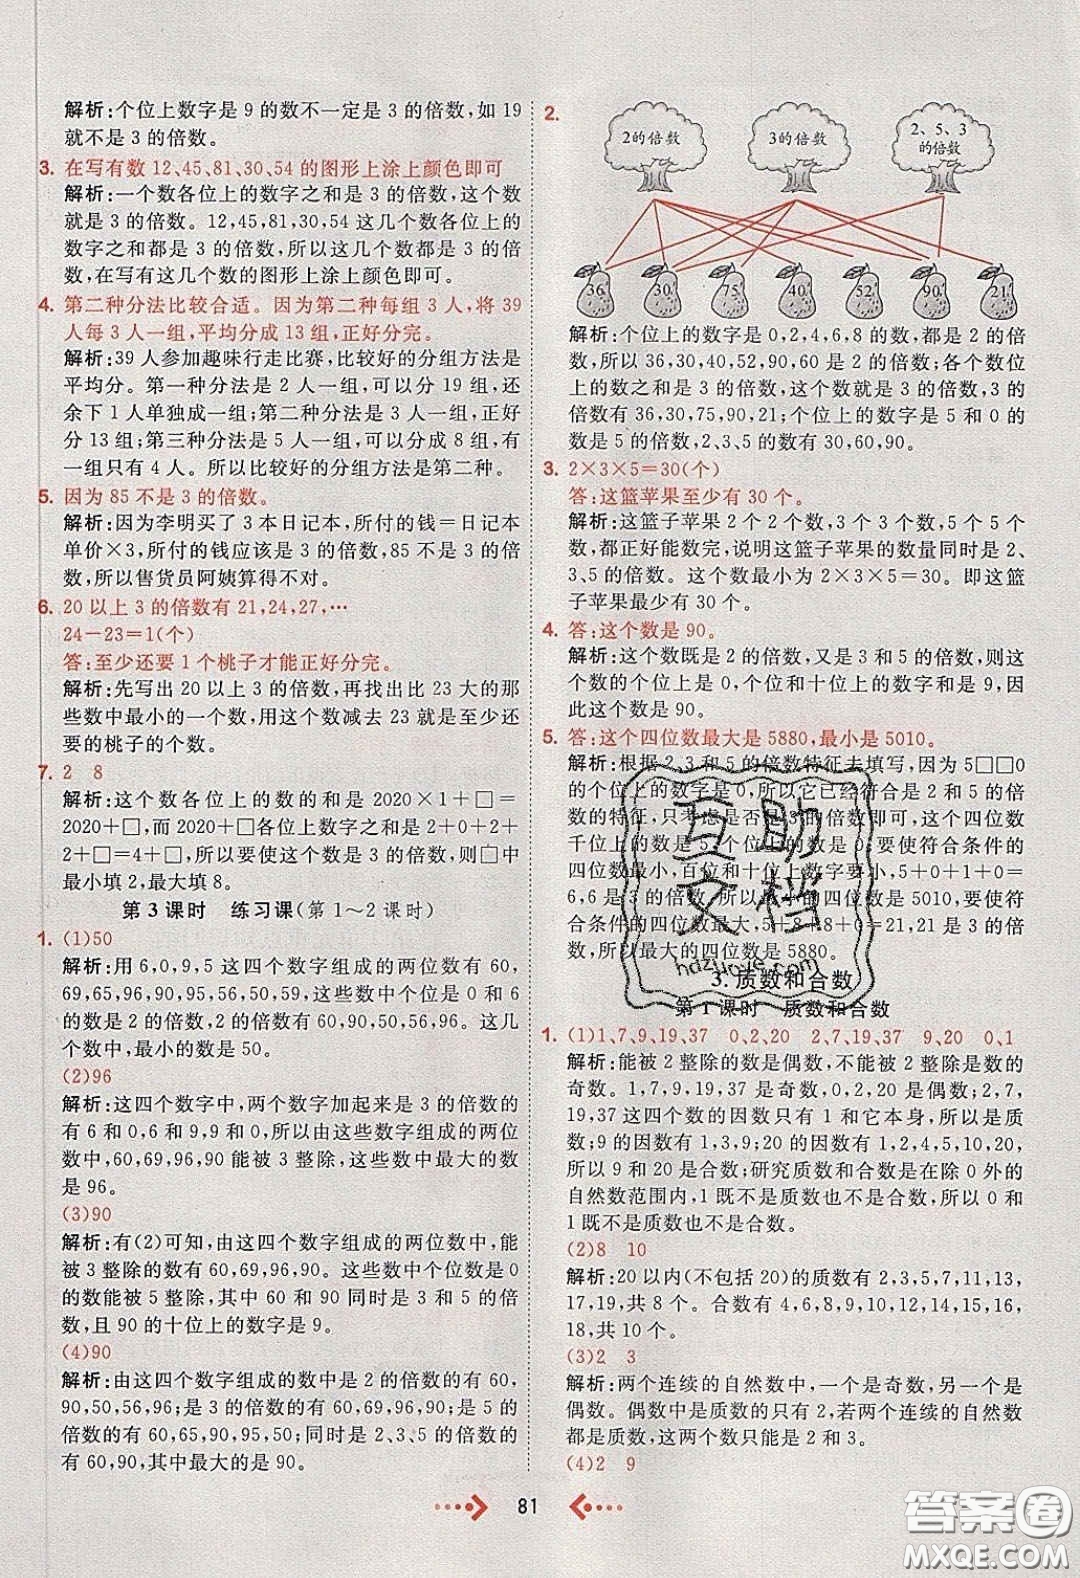 解析:个位上数字是 9 的数不一定是 3 的倍数,如 19
就不是 3 的倍数。
3. 在写有数 12,45,81,30,54 的图形上涂上颜色即可
解析:一个数各位上的数字之和是 3 的倍数,这个数
就是 3 的倍数。12,45,81,30,54 这几个数各位上的
数字之和都是 3 的倍数,所以这几个数都是 3 的倍
数、在写有这几个数的图形上涂上颜色即可。
4. 第二种分法比较合适。因为第二种每组 3 人,将 39
人每 3 人一组,平均分成 13 组,正好分完。
解析:39 人参加趣味行走比赛,比较好的分组方法是
平均分。第一种分法是 2 人一组,可以分 19 组,还
余下 1 人单独成一组;第二种分法是 3 人一组,正好
分 13 组;第三种分法是 5 人一组,可以分成 8 组,有
一组只有 4 人。所以比较好的分组方法是第二种。
5. 因为 85 不是 3 的倍数。
解析:因为李明买了 3 本日记本,所付的钱=日记本
单价×3,所付的钱应该是 3 的倍数,85 不是 3 的倍
数,所以售货员阿姨算得不对。
6. 20 以上 3 的倍数有 21,24,27,…
24-23=1(个)
答:至少还要 1 个桃子才能正好分完。
解析:先写出 20 以上 3 的倍数,再找出比 23 大的
那些数中最小的一个数,用这个数减去 23 就是至少还
要的桃子的个数。
7. 2 8
解析:这个数各位上的数的和是 2020×1+□=
2020+□,而 2020+□各位上数字之和是 2+0+2+
2+□=4+□,所以要使这个数是 3 的倍数,则□中
最小填 2,最大填 8。
第 3 课时 练习课(第 1～2 课时)
1. (1)50
解析:用 6,0,9,5 这四个数字组成的两位数有 60,
69,65,96,90,95,50,56,59,这些数中个位是 0 和 6
的数是 2 的倍数,2 的倍数有 60,90,50,56,96。这几
个数中,最小的数是 50。
(2)96
解析:这四个数字中,两个数字加起来是 3 的倍数的
有 6 和 0,6 和 9,9 和 0,所以由这些数字组成的两位
数中,60,69,96,90 能被 3 整除,这些数中最大的数
是 96。
(3)90
解析:有(2)可知,由这四个数字组成的两位数中,能
被 3 整除的数有 60,69,96,90。这些数中个位数是 0
的数能被 5 整除,其中 60 和 90 同时是 3 和 5 的倍
数,且 90 的十位上的数字是 9。
(4)90
解析:由这四个数字组成的数中是 2 的倍数的有 60,
90,50,56,96;是 3 的倍数的有 60,69,96,90;是 5
的倍数的有 60,65,90,95,50;同时是 2、3、5 的倍数的
有 60,90,其中最大的是 90。
2.
2的倍数
3的倍数
2、5、3
的倍数
36 30 75 40 52 90 21
解析:个位上的数字是 0,2,4,6,8 的数,都是 2 的倍
数,所以 36,30,40,52,90,60 是 2 的倍数;各个数位
上的数之和是 3 的倍数,这个数就是 3 的倍数,3 的
倍数有 36,30,75,90,21;个位上的数字是 5 和 0 的
数是 5 的倍数,2、3、5 的倍数有 30,60,90。
3. 2×3×5=30(个)
答:这篮苹果至少有 30 个。
解析:这篮子苹果 2 个 2 个数,3 个 3 个数,5 个 5 个
数,都正好能数完,说明这篮子苹果的数量同时是 2、
3、5 的倍数。这个数最小为 2×3×5=30。即这篮
子苹果最少有 30 个。
4. 答:这个数是 90。
解析:这个数既是 2 的倍数,又是 3 和 5 的倍数,这
个数的个位上是 0,个位和十位上的数字和是 9,因
此这个数是 90。
5. 答:这个四位数最大是 5880,最小是 5010。
解析:根据 2、3 和 5 的倍数特征去填写,因为 5□□0
个位上的数字是 0,所以它已经符合是 2 和 5 的倍
数的特征,只考虑是否是 3 的倍数即可,这个四位数
千位上的数是 5,个位上的数是 0,要使符合条件的
四位数最小,百位和十位上的数字和是 1,5+0+1+0=
6,6 是 3 的倍数,所以最小的四位数是 5010,要使符合
条件的四位数最大,5+8+8+0=21,21 是 3 的倍
数,所以最大的四位数是 5880。
3. 质数和合数
第 1 课时 质数和合数
1. (1)1,7,9,19,37 0,2,20 2,7,19,37 9,20 0,1
解析:能被 2 整除的数是偶数,不能被 2 整除的数是
奇数。1,7,9,19,37 是奇数,0,2,20 是偶数;2,7,
19,37 这四个数的因数只有 1 和它本身,所以是质
数;9 的因数有 1,3,9;20 的因数有 1,2,4,5,10,20,
所以 9 和 20 是合数;研究质数和合数是在除 0 外的
自然数范围内,1 的因数只有一个,是 1,所以 0 和
1 既不是质数也不是合数。
(2)8 10
解析:20 以内(不包括 20)的质数有 2,3,5,7,11,13,
17,19,共 8 个。合数有 4,6,8,9,10,12,14,15,16,
18,共 10 个。
(3)2 3
解析:两个连续的自然数中,一个是奇数,另一个是
偶数。偶数中是质数的只有 2,若两个连续的自然数
都是质数,则这两个数只能是 2 和 3。
(4)2 9
81
互助
文档
hdzuoye.com
答案圈
MXQE.COM